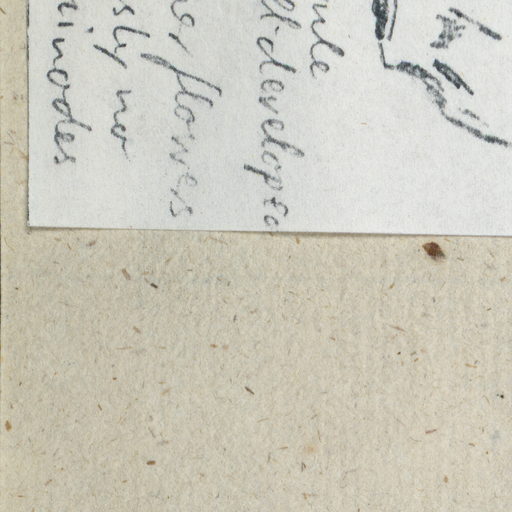 ule
ll-developed
er flowers
sly no
inodes